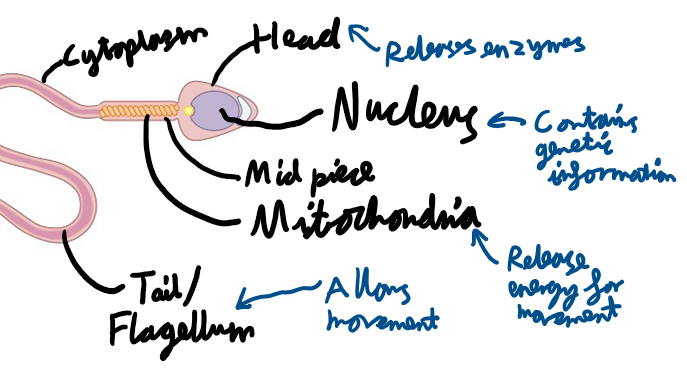 Cytoplasm
Head
Releases enzymes
Nucleus
Contains
genetic
information
Mid piece
Mitochondria
Release
energy for
movement
Tail/
Flagellum
Allows
movement